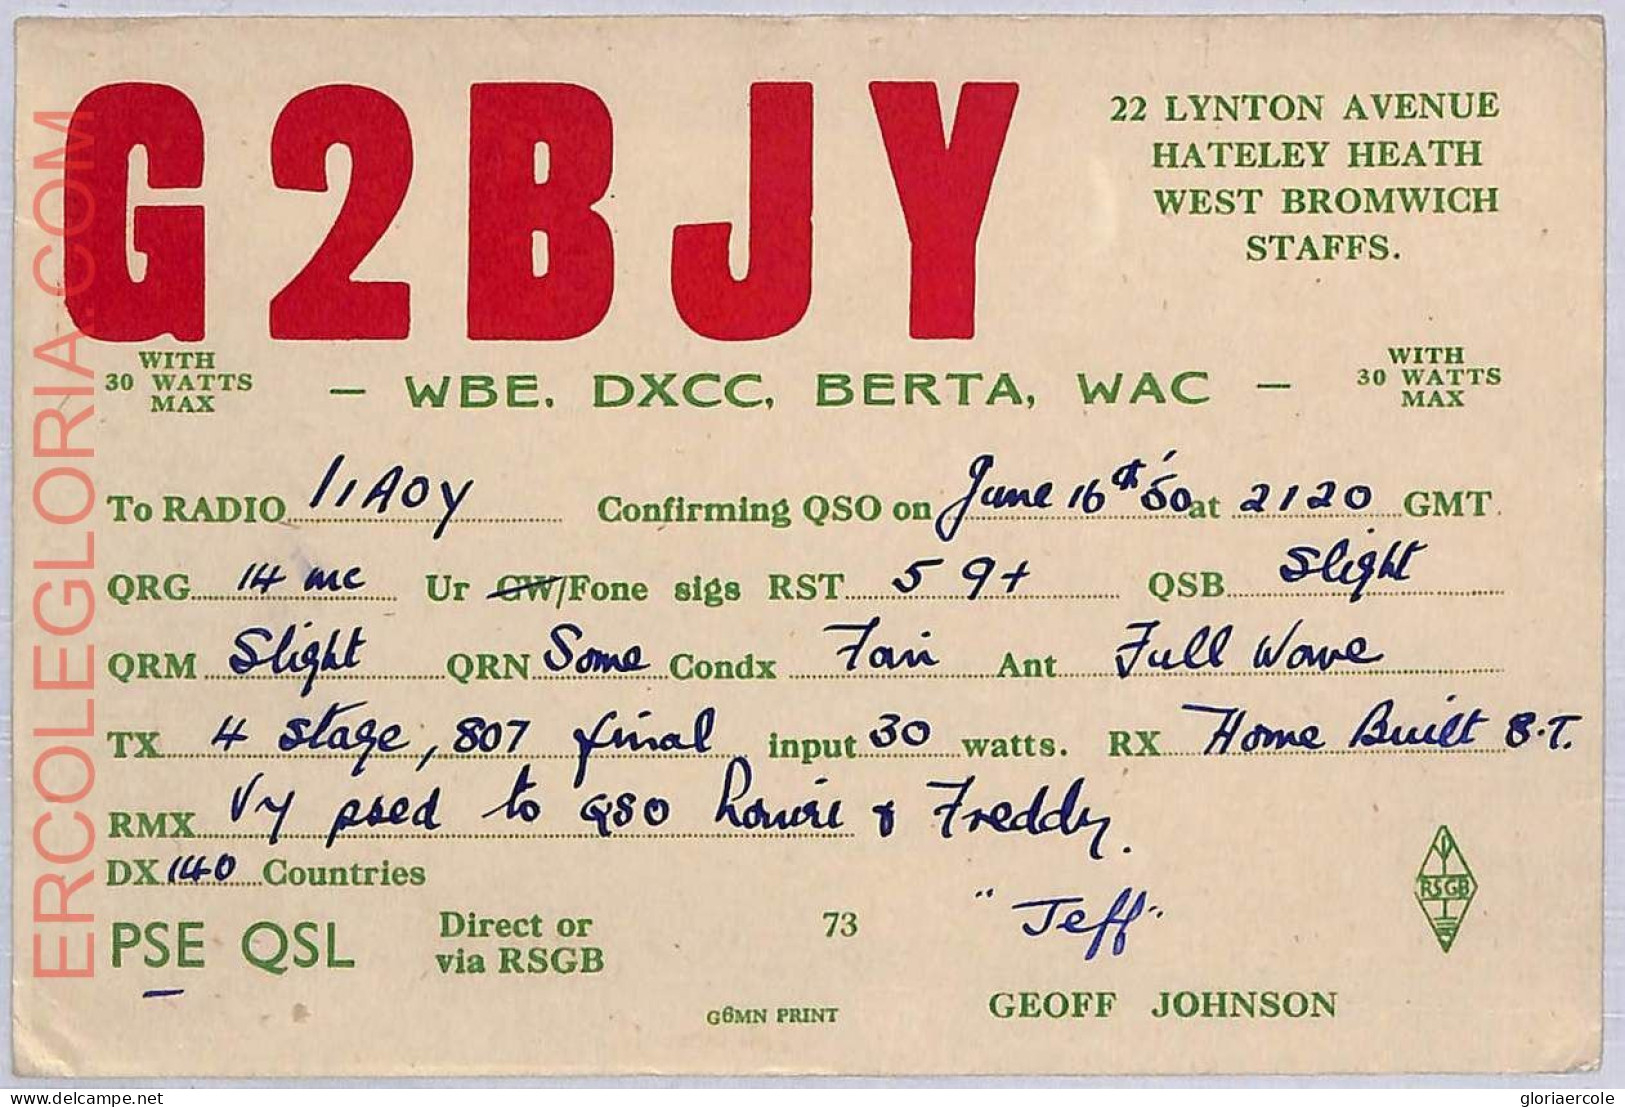 G2BJY
22 LYNTON AVENUE
HATELEY HEATH
WEST BROMWICH
STAFFS.
WITH
30 WATTS
MAX
— WBE, DXCC, BERTA, WAC —
WITH
30 WATTS
MAX
To RADIO I1AOY Confirming QSO on June 16th '50 at 2120 GMT
QRG 14 mc Ur CW/Fone sigs RST 5 9+ QSB Slight
QRM Slight QRN Some Condx Fair Ant Full Wave
TX 4 stage, 807 final input 30 watts. RX Home Built 8.T.
RMX Vy psed to QSO & Freddy.
DX 140 Countries
PSE QSL Direct or via RSGB 73 "Jeff"
RSGB
G6MN PRINT
GEOFF JOHNSON
ERCOLEGLORIA.COM
delcampe.net
gloriaercole